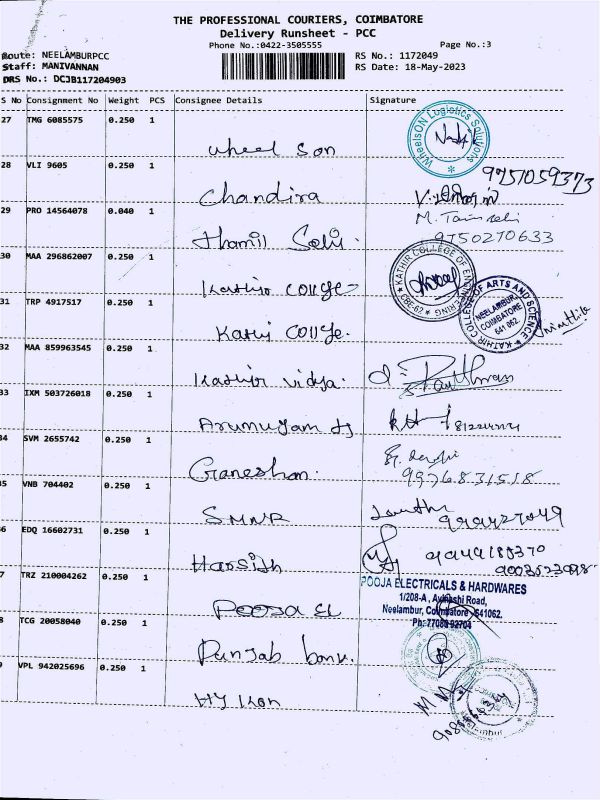 THE PROFESSIONAL COURIERS, COIMBATORE
Delivery Runsheet - PCC
Phone No.:0422-3505555 Page No.:3
Route: NEELAMBURPCC
Staff: MANIVANNAN
DRS No.: DCJB117204903
RS No.: 1172049
RS Date: 18-May-2023
S No Consignment No Weight PCS Consignee Details Signature
27 TMG 6085575 0.250 1
wheel Son
WheelsON Logistics Solutions
28 VLI 9605 0.250 1
Chandira
9751059373
29 PRO 14564078 0.040 1
thamil Selvi
M.
9750270633
30 MAA 296862007 0.250 1
Kathir College
KATHIR COLLEGE OF ENGINEERING
CBE-62
31 TRP 4917517 0.250 1
Kathi College.
KATHIR COLLEGE OF ARTS AND SCIENCE
NEELAMBUR,
COIMBATORE
641 062.
32 MAA 859963545 0.250 1
Kathir vidya.
33 IXM 503726018 0.250 1
Arumugam
34 SVM 2655742 0.250 1
Ganeshan.
9976831518
35 VNB 704402 0.250 1
SMNR
36 EDQ 16602731 0.250 1
Harsith
7 TRZ 210004262 0.250 1
Pooja EL
POOJA ELECTRICALS & HARDWARES
1/208-A, Avinashi Road,
Neelambur, Coimbatore - 641062.
Ph: 77088 92704
8 TCG 20058040 0.250 1
Punjab bank.
9 VPL 942025696 0.250 1